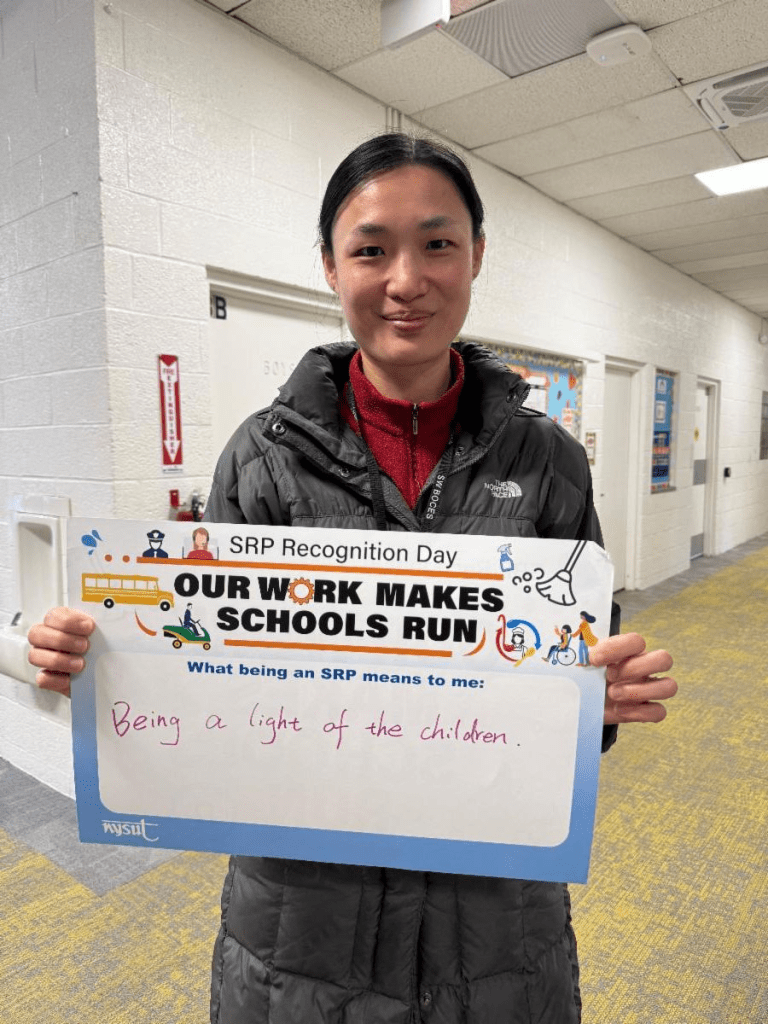 B
BOYS
FIRE
EXTINGUISHER
THE
NORTH
FACE
SW BOCES
SRP Recognition Day
OUR WORK MAKES
SCHOOLS RUN
What being an SRP means to me:
Being a light of the children.
nysut